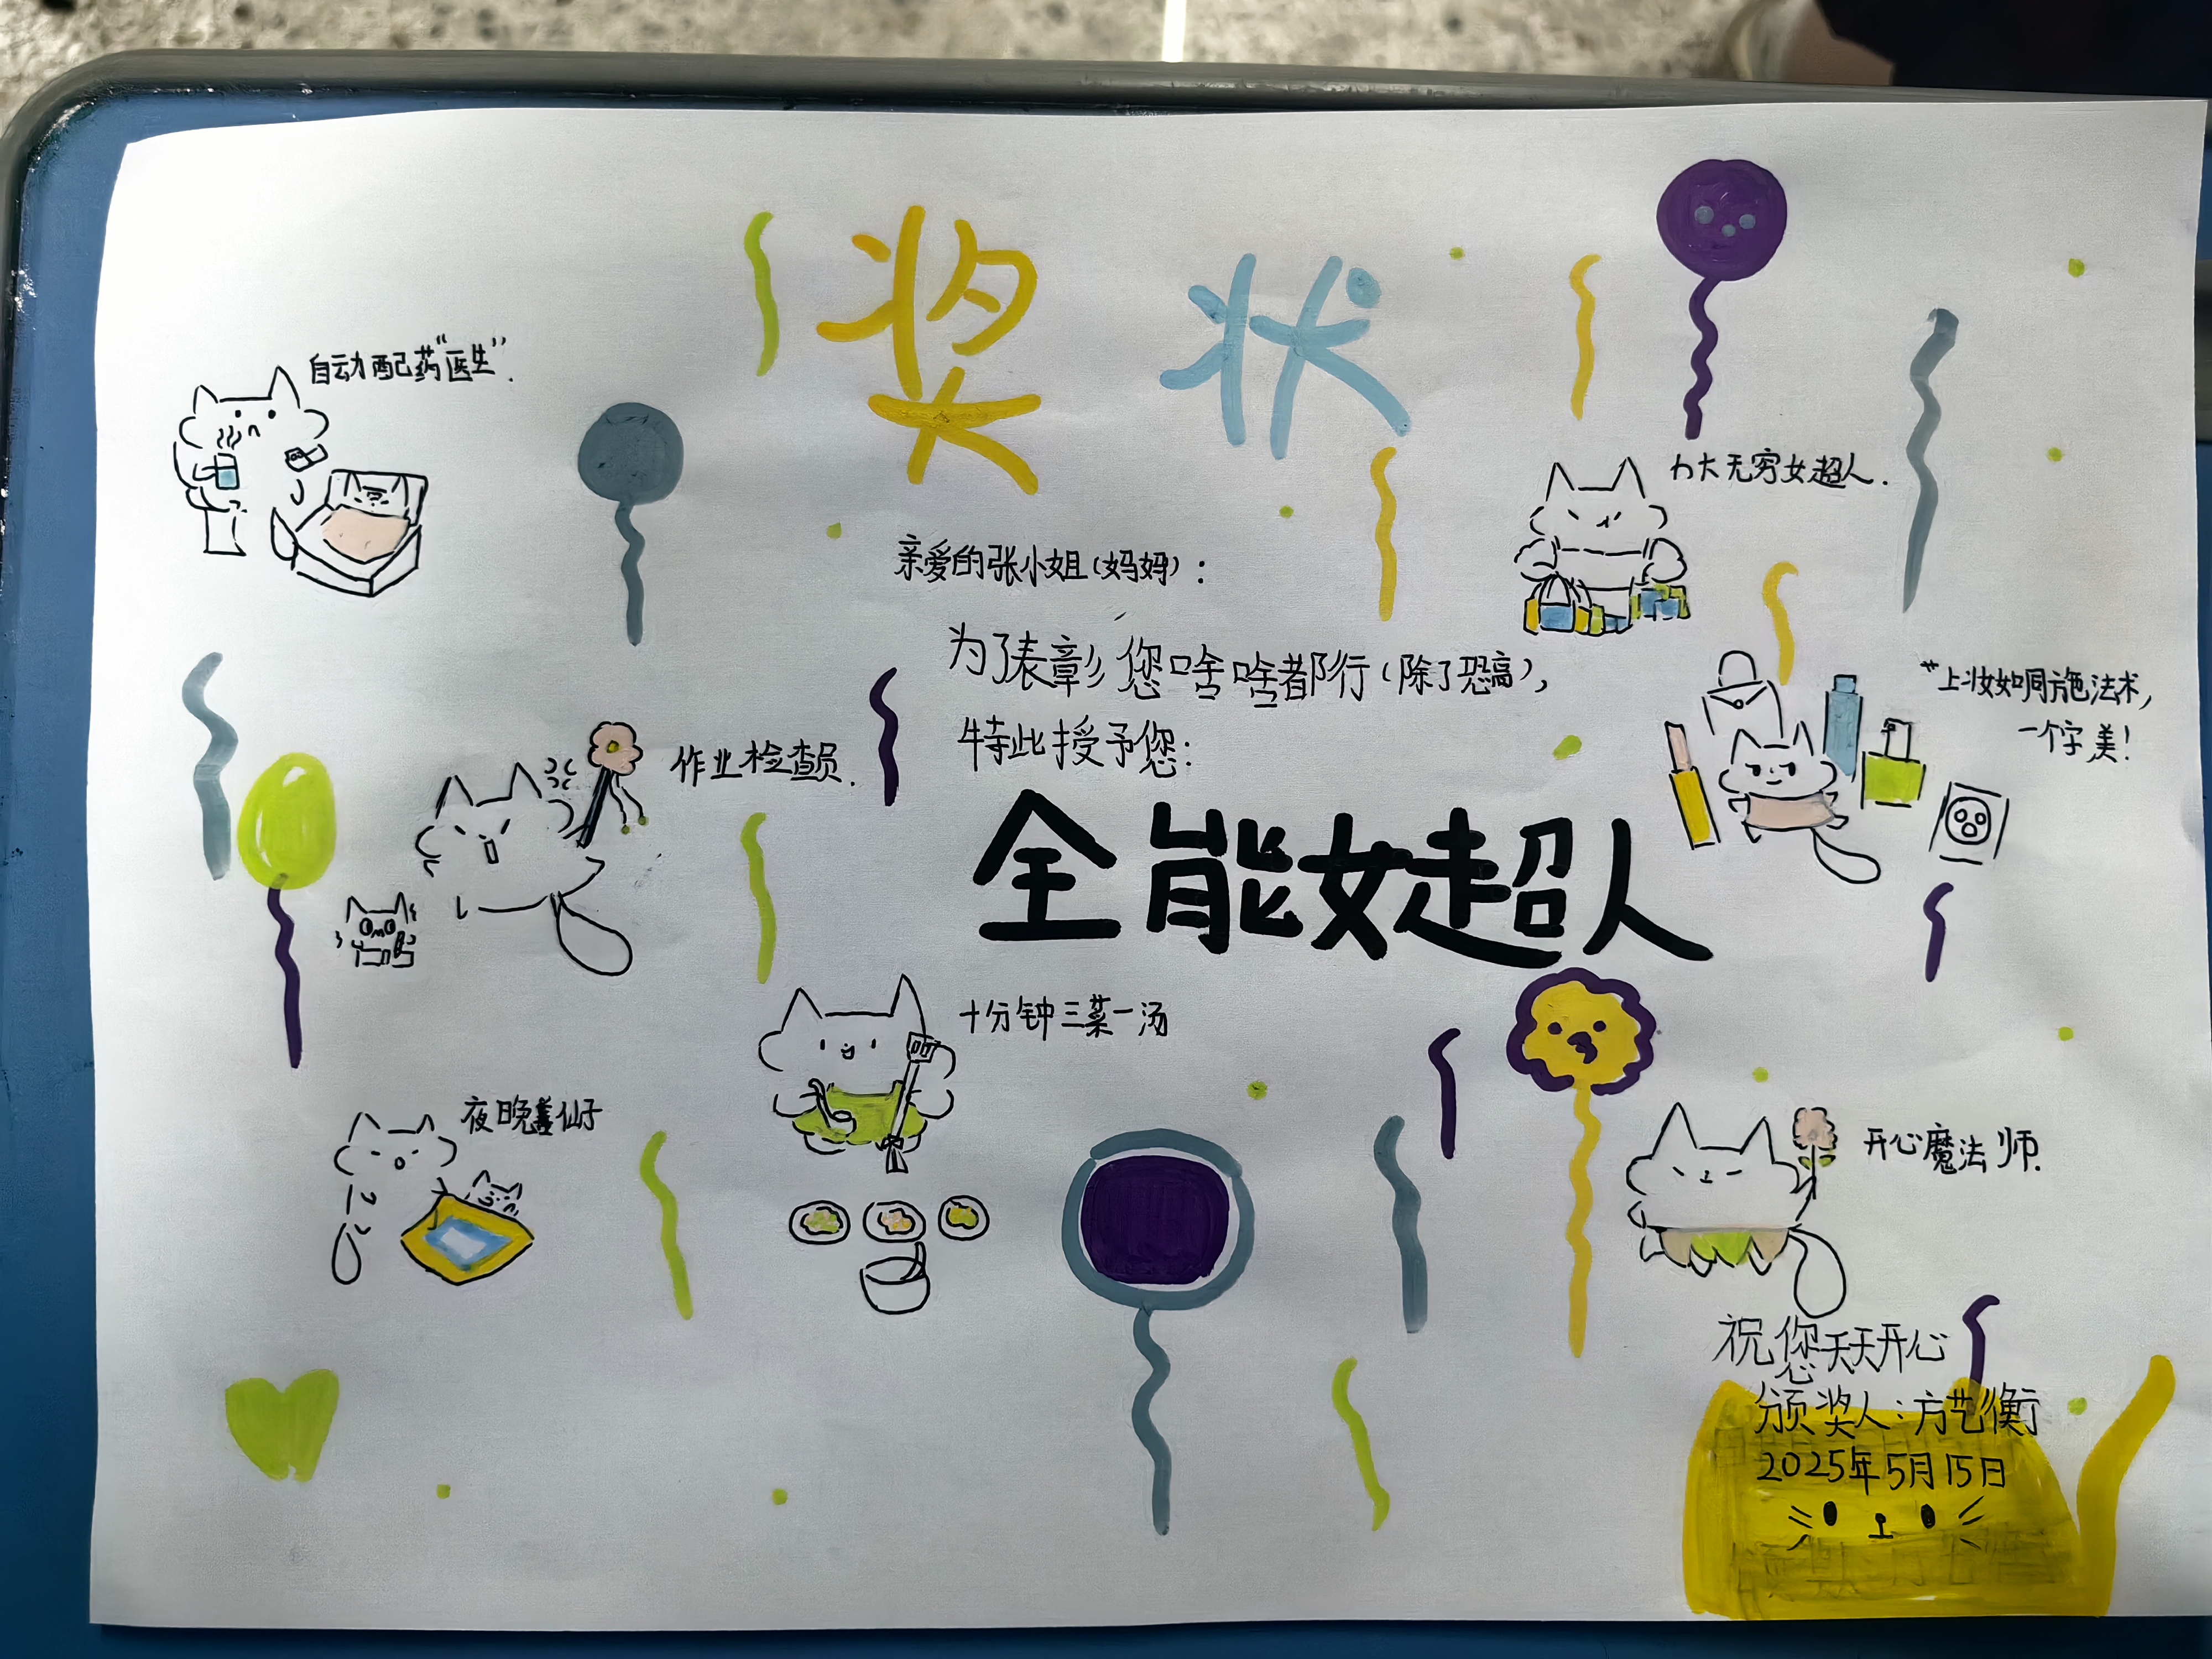 奖状
自动配药“医生”.
力大无穷女超人.
亲爱的张小姐(妈妈):
为了表彰您啥啥都行(除了恐高),
特此授予您:
全能女超人
上妆如同施法术,
一个字美!
作业检查员.
十分钟三菜一汤
夜晚盖仙子
开心魔法师.
祝您天天开心
颁奖人:方艺衡
2025年5月15日